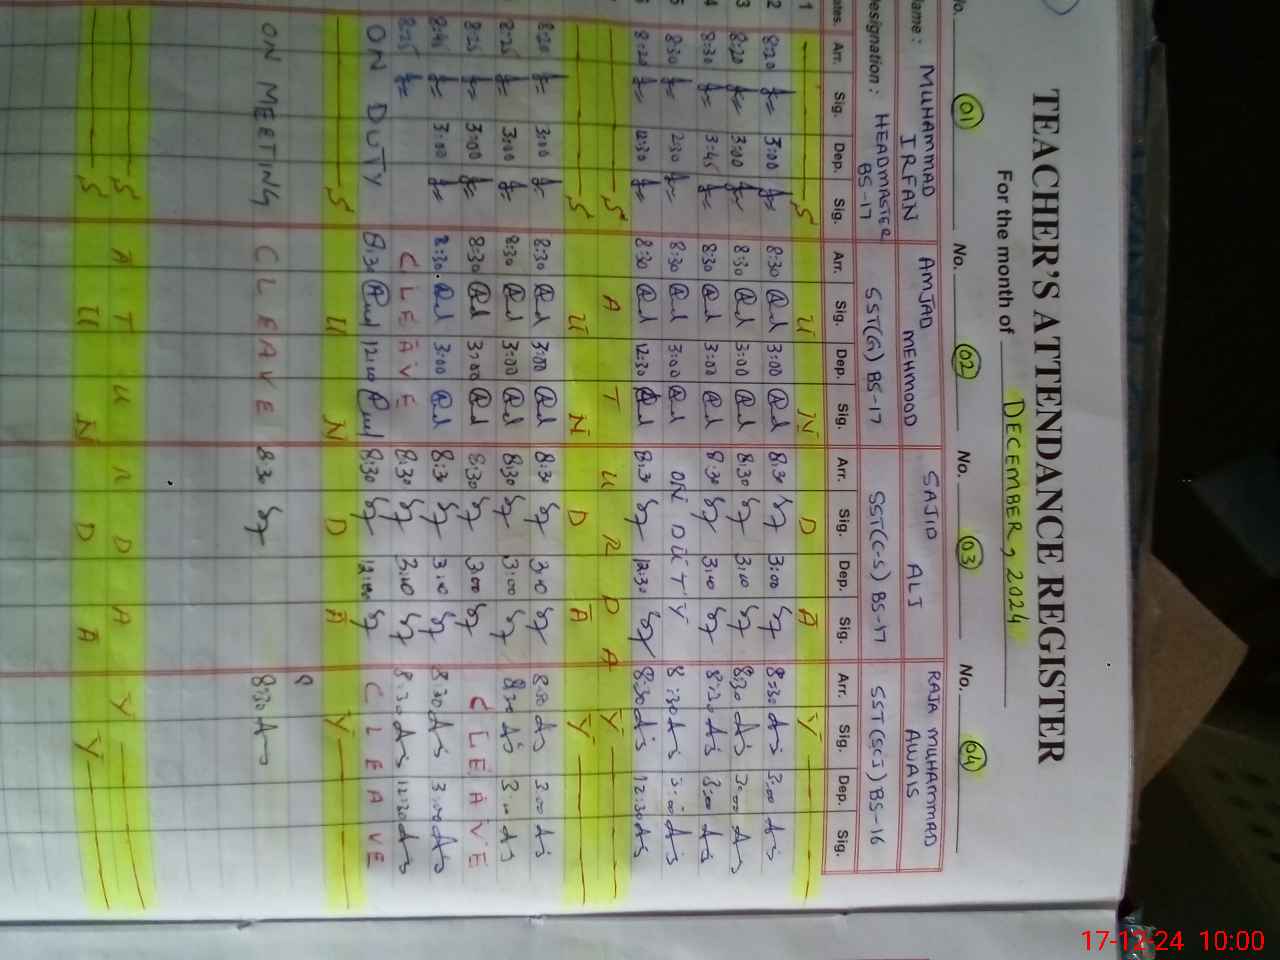 TEACHER'S ATTENDANCE REGISTER
For the month of DECEMBER, 2024
No. 01 No. 02 No. 03 No. 04
Name: MUHAMMAD IRFAN AMJAD MEHMOOD SAJID ALI RAJA MUHAMMAD AWAIS
Designation: HEADMASTER BS-17 SST(G) BS-17 SST(C-S) BS-17 SST(SCI) BS-16
Dates. Arr. Sig. Dep. Sig. Arr. Sig. Dep. Sig. Arr. Sig. Dep. Sig. Arr. Sig. Dep. Sig.
1 S U N D A Y
2 8:20 3:00 8:30 3:00 8:30 3:00 8:30 3:00
3 8:20 3:00 8:30 3:00 8:30 3:00 8:30 3:00
4 8:30 3:45 8:30 3:00 8:30 3:00 8:30 3:00
5 8:30 2:30 8:30 3:00 ON DUTY 8:30 3:00
6 8:20 12:30 8:30 12:30 8:30 12:30 8:30 12:30
S A T U R D A Y
S U N D A Y
8:20 3:00 8:30 3:00 8:30 3:00 8:30 3:00
8:25 3:00 8:30 3:00 8:30 3:00 8:30 3:00
8:25 3:00 8:30 3:00 8:30 3:00 C LEAVE
8:45 3:00 8:30 3:00 8:30 3:00 8:30 3:00
8:25 C LEAVE 8:30 3:00 8:30 12:30
ON DUTY 8:30 12:00 8:30 12:00 C LEAVE
S U N D A Y
8
ON MEETING C LEAVE 8:30 8:30
S A T U R D A Y
S U N D A Y
17-12-24 10:00